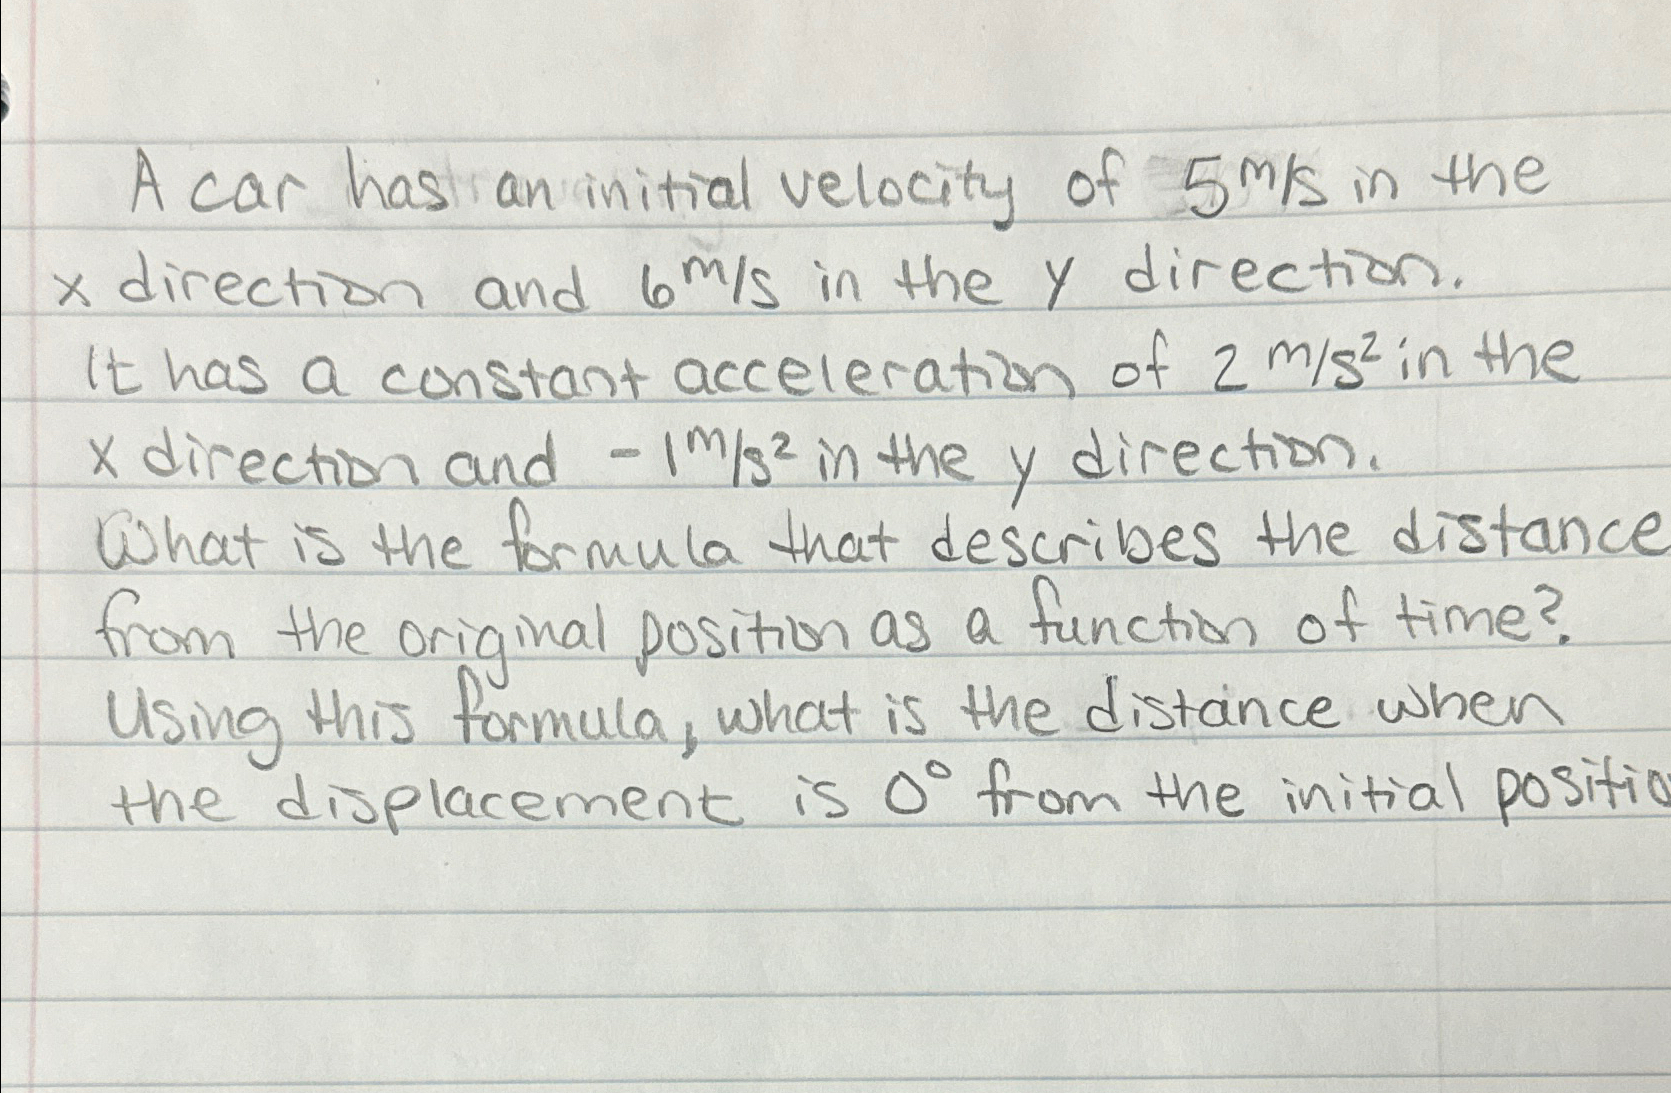 A car has an initial velocity of 5 m/s in the
x direction and 6 m/s in the y direction.
It has a constant acceleration of 2 m/s² in the
x direction and -1 m/s² in the y direction.
What is the formula that describes the distance
from the original position as a function of time?
Using this formula, what is the distance when
the displacement is 0° from the initial positio